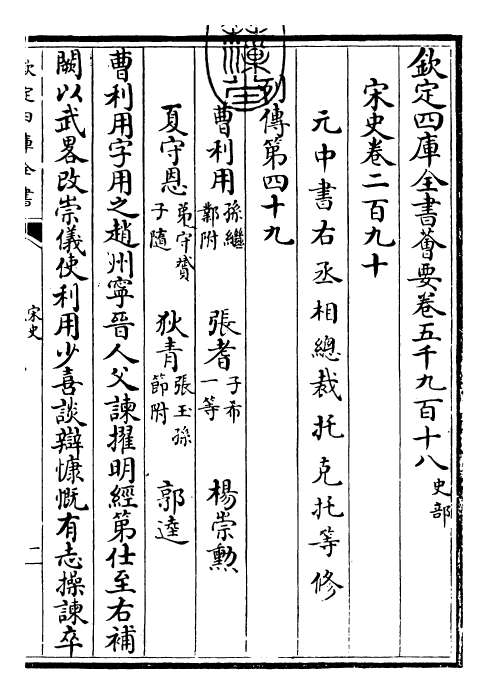 欽定四庫全書薈要卷五千九百十八史部
宋史卷二百九十
元中書右丞相總裁托克托等修
列傳第四十九
曹利用孫繼鄴附 張耆子希一等 楊崇勲
夏守恩弟守贇子隨 狄青張玉孫節附 郭逵
曹利用字用之趙州寧晉人父諫擢明經第仕至右補
闕以武畧改崇儀使利用少喜談辯慷慨有志操諫卒
欽定四庫全書
宋史
二